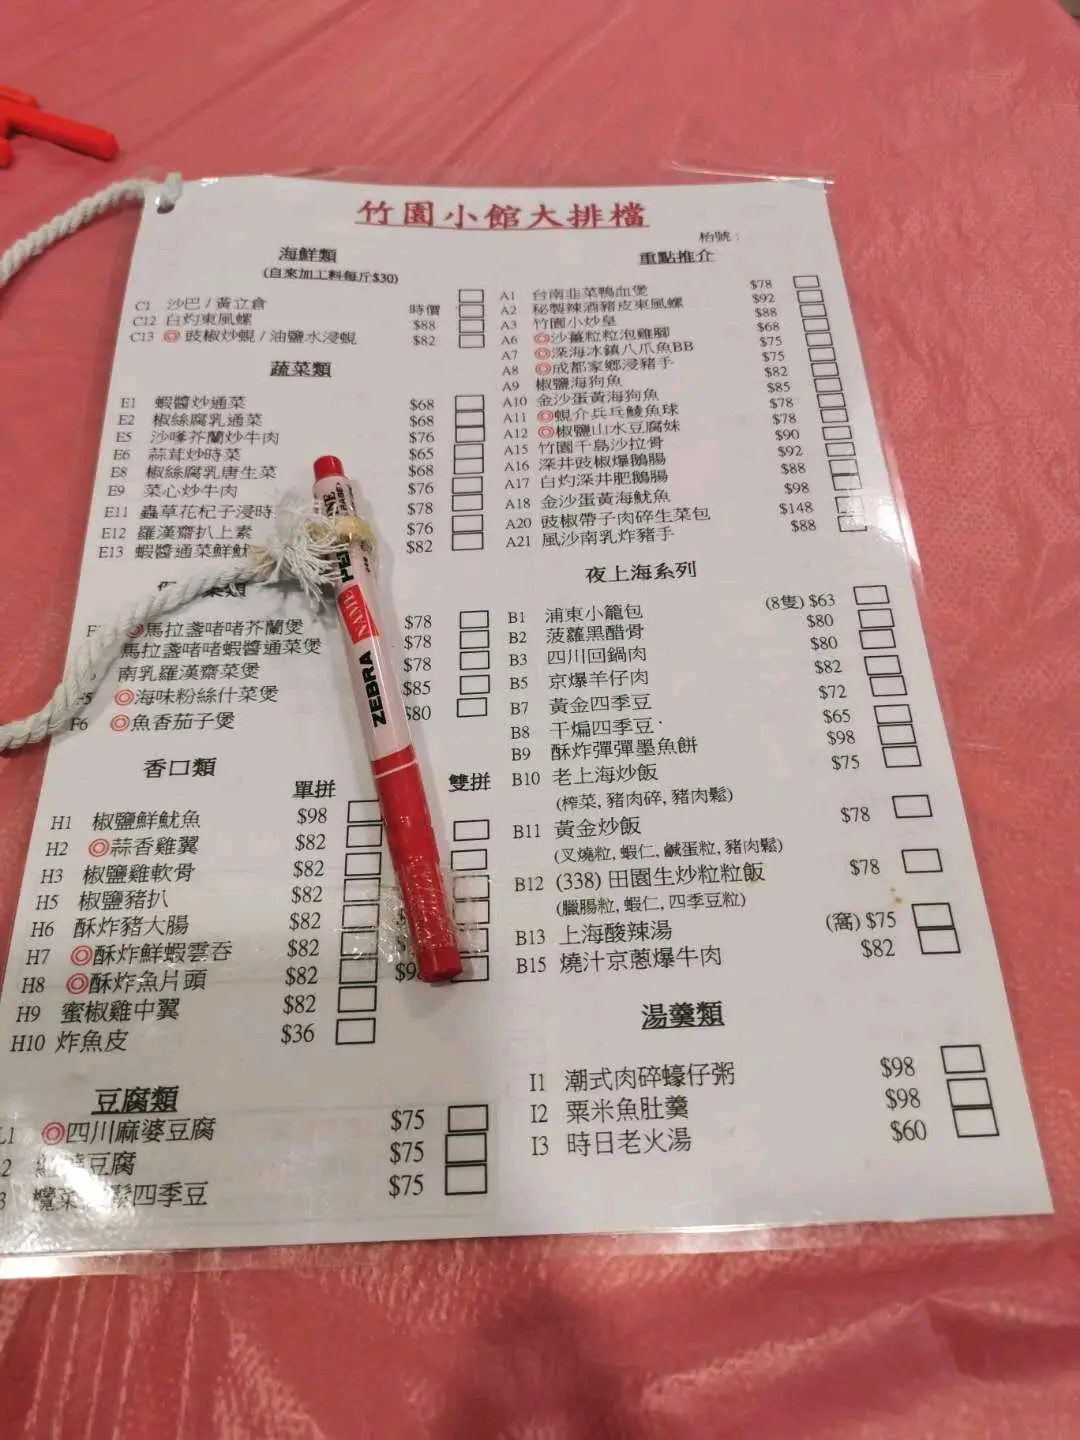 竹園小館大排檔
枱號：
海鮮類
(自來加工料每斤$30)
C1 沙巴 / 黃立倉 時價
C12 白灼東風螺 $88
C13 ◎ 豉椒炒蜆 / 油鹽水浸蜆 $82
蔬菜類
E1 蝦醬炒通菜 $68
E2 椒絲腐乳通菜 $68
E5 沙嗲芥蘭炒牛肉 $76
E6 蒜茸炒時菜 $65
E8 椒絲腐乳唐生菜 $68
E9 菜心炒牛肉 $76
E11 蟲草花杞子浸時 $78
E12 羅漢齋扒上素 $76
E13 蝦醬通菜鮮魷 $82
菜類
◎馬拉盞啫啫芥蘭煲 $78
馬拉盞啫啫蝦醬通菜煲 $78
南乳羅漢齋菜煲 $78
◎海味粉絲什菜煲 $85
F6 ◎魚香茄子煲 $80
香口類
單拼 雙拼
H1 椒鹽鮮魷魚 $98
H2 ◎蒜香雞翼 $82
H3 椒鹽雞軟骨 $82
H5 椒鹽豬扒 $82
H6 酥炸豬大腸 $82
H7 ◎酥炸鮮蝦雲吞 $82
H8 ◎酥炸魚片頭 $82
H9 蜜椒雞中翼 $82
H10 炸魚皮 $36
豆腐類
◎四川麻婆豆腐 $75
豆腐 $75
欖菜 鬆四季豆 $75
重點推介
A1 台南韭菜鴨血煲 $78
A2 秘製辣酒豬皮東風螺 $92
A3 竹園小炒皇 $88
A6 ◎沙薑粒粒泡雞腳 $68
A7 ◎深海冰鎮八爪魚BB $75
A8 ◎成都家鄉浸豬手 $75
A9 椒鹽海狗魚 $82
A10 金沙蛋黃海狗魚 $85
A11 ◎蜆介兵乓鯪魚球 $78
A12 ◎椒鹽山水豆腐妹 $78
A15 竹園千島沙拉骨 $90
A16 深井豉椒爆鵝腸 $92
A17 白灼深井肥鵝腸 $88
A18 金沙蛋黃海魷魚 $98
A20 豉椒帶子肉碎生菜包 $148
A21 風沙南乳炸豬手 $88
夜上海系列
B1 浦東小籠包 (8隻) $63
B2 菠蘿黑醋骨 $80
B3 四川回鍋肉 $80
B5 京爆羊仔肉 $82
B7 黃金四季豆 $72
B8 干煸四季豆 $65
B9 酥炸彈彈墨魚餅 $98
B10 老上海炒飯 $75
(榨菜, 豬肉碎, 豬肉鬆)
B11 黃金炒飯 $78
(叉燒粒, 蝦仁, 鹹蛋粒, 豬肉鬆)
B12 (338) 田園生炒粒粒飯 $78
(臘腸粒, 蝦仁, 四季豆粒)
B13 上海酸辣湯 (窩) $75
B15 燒汁京蔥爆牛肉 $82
湯羹類
I1 潮式肉碎蠔仔粥 $98
I2 粟米魚肚羹 $98
I3 時日老火湯 $60
ZEBRA
NAME